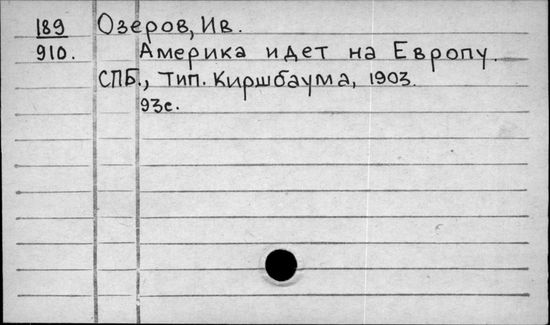 189 Озеров, Ив.
910. Америка идет на Европу.
СПБ., Тип. Киршбаума, 1903.
93с.